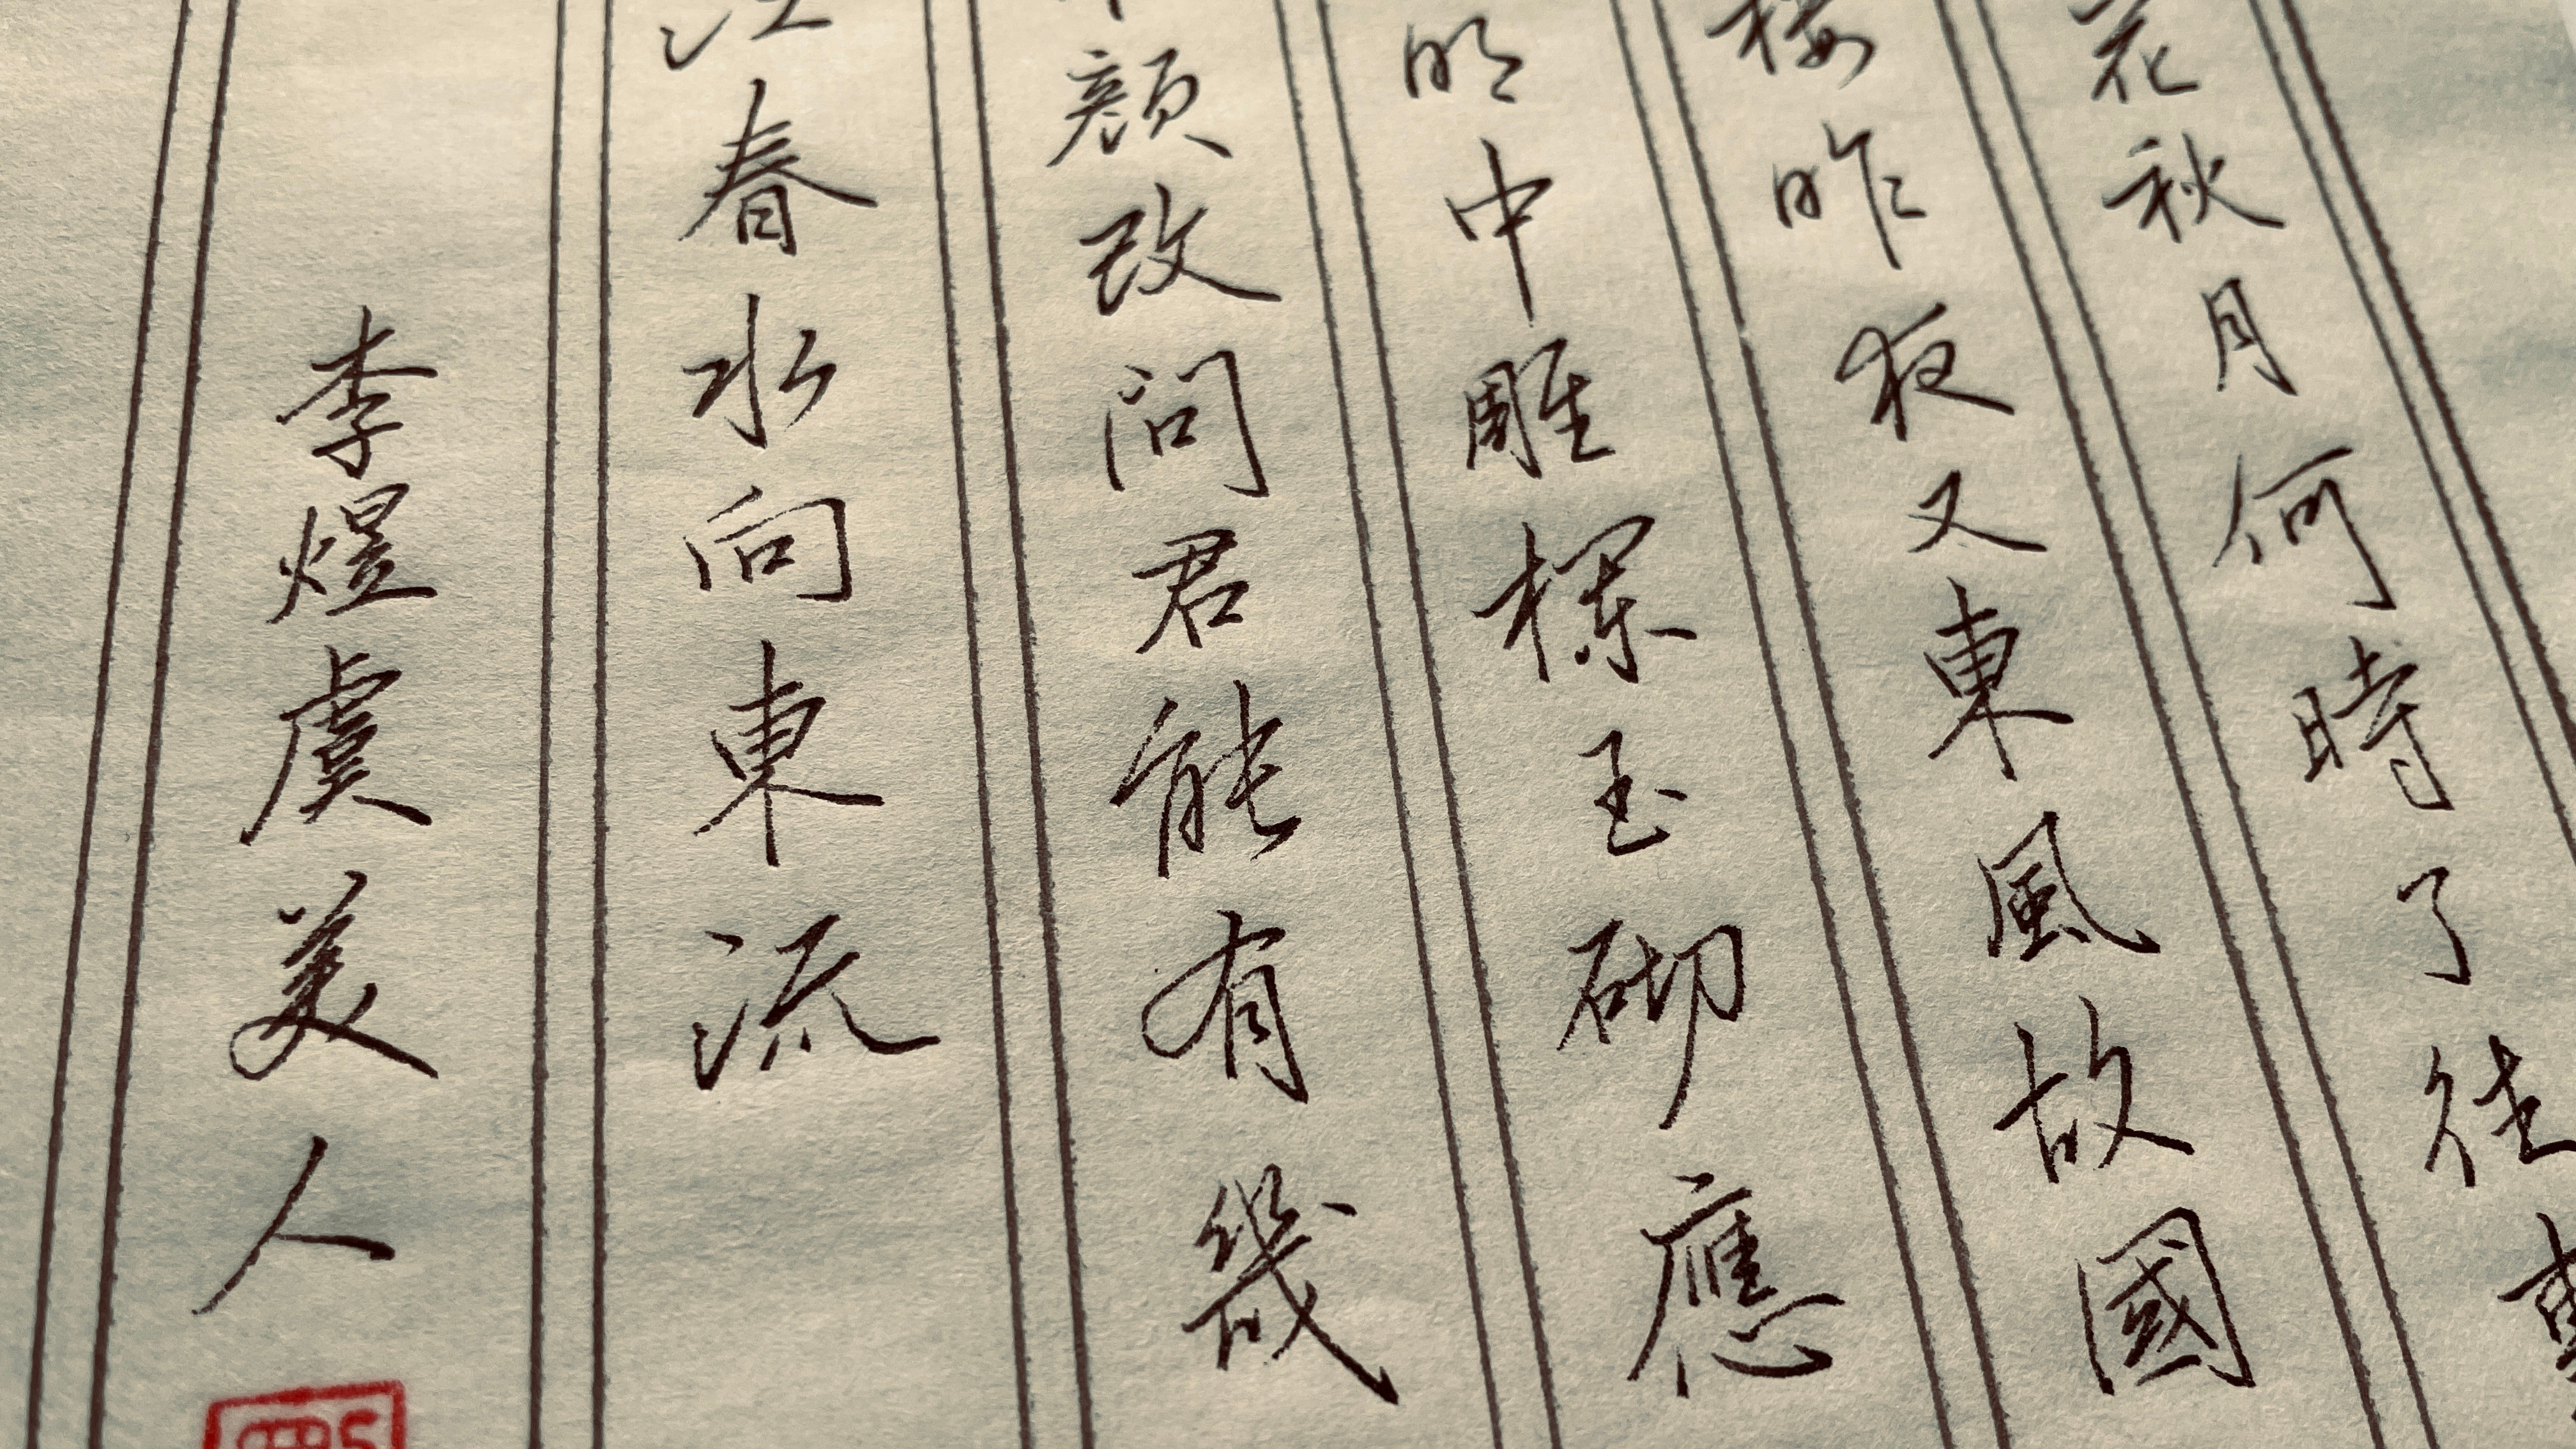 花秋月何時了往事
樓昨夜又東風故國
明中雕欄玉砌應
顏改问君能有幾
江春水向東流
李煜虞美人